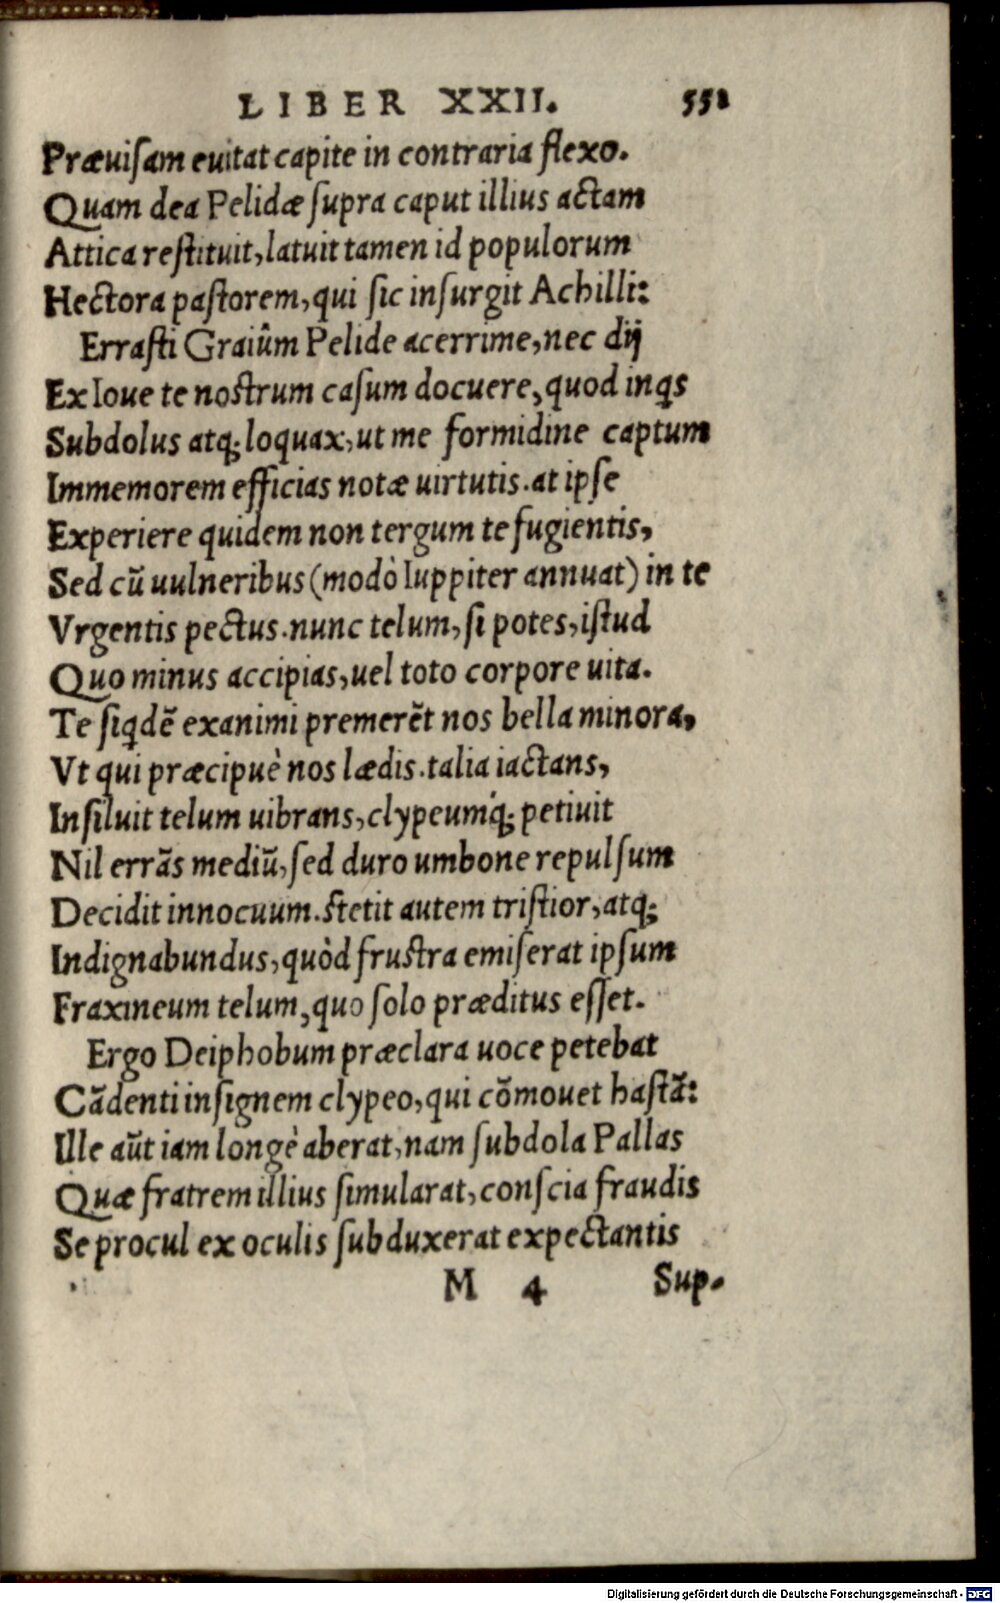 LIBER XXII. 551
Præuiſam euitat capite in contraria flexo.
Quam dea Pelidæ ſupra caput illius actam
Attica reſtituit, latuit tamen id populorum
Hectora paſtorem, qui ſic inſurgit Achilli:
Erraſti Graiûm Pelide acerrime, nec dij
Ex Ioue te noſtrum caſum docuere, quod inq̃s
Subdolus atq; loquax, ut me formidine captum
Immemorem efficias notæ uirtutis. at ipſe
Experiere quidem non tergum te fugientis,
Sed cũ uulneribus (modò Iuppiter annuat) in te
Vrgentis pectus. nunc telum, ſi potes, iſtud
Quo minus accipias, uel toto corpore uita.
Te ſiq̃dẽ exanimi premerẽt nos bella minora,
Vt qui præcipuè nos lædis. talia iactans,
Inſiluit telum uibrans, clypeumq́; petiuit
Nil errãs mediũ, ſed duro umbone repulſum
Decidit innocuum. ſtetit autem triſtior, atq;
Indignabundus, quòd fruſtra emiſerat ipſum
Fraxineum telum, quo ſolo præditus eſſet.
Ergo Deiphobum præclara uoce petebat
Cãdenti inſignem clypeo, qui cõmouet haſtã:
Ille aũt iam longè aberat, nam ſubdola Pallas
Quæ fratrem illius ſimularat, conſcia fraudis
Se procul ex oculis ſubduxerat expectantis
M 4 Sup-
Digitalisierung gefördert durch die Deutsche Forschungsgemeinschaft - DFG